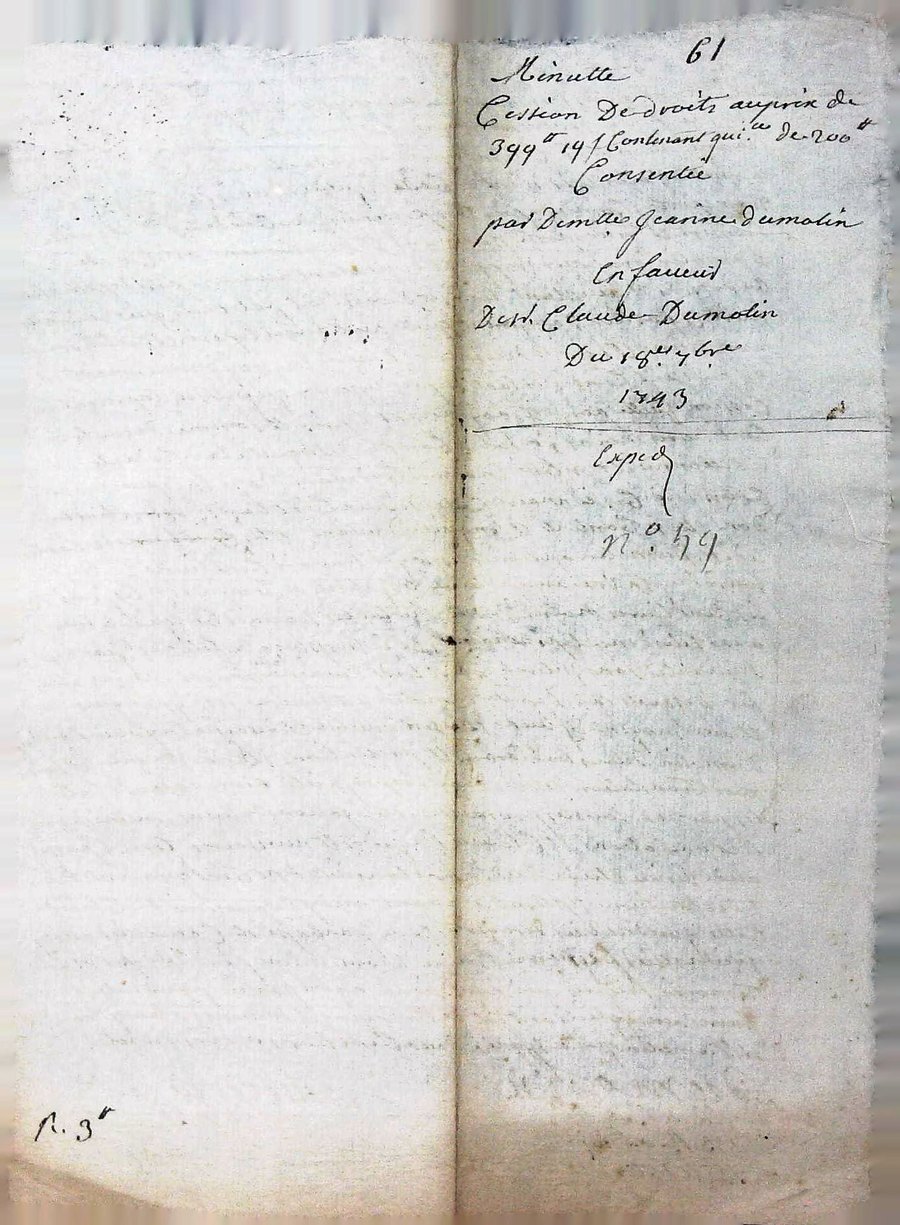 61
Minutte
Cession De droits au prix de
399 tt 19 s Contenant qui.ce de 200 tt
Consentie
par Demlle Jeanne dumolin
En faveur
De sr. Claude Dumolin
Du 18e 7bre
1743
Exped
n.o 59
R. 3 tt